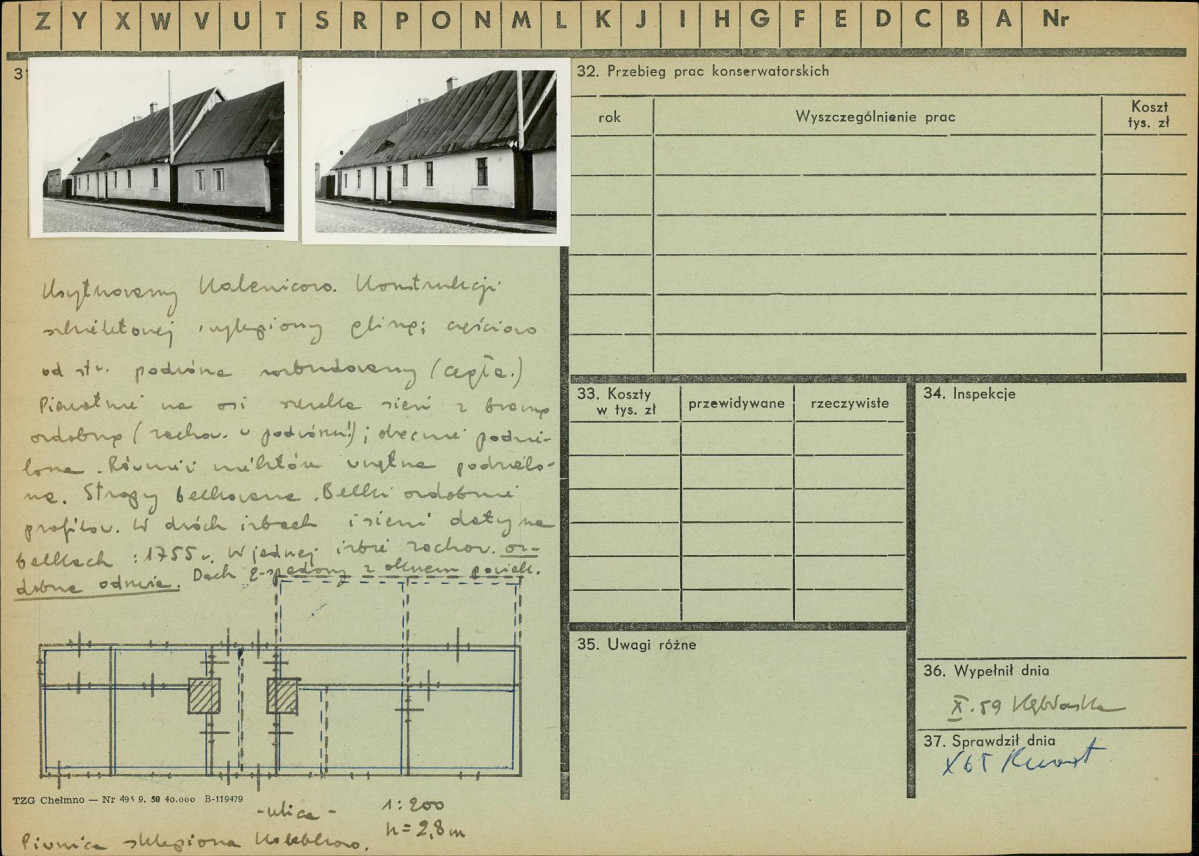 Z Y X W V U T S R P O N M L K J I H G F E D C B A Nr
31
32. Przebieg prac konserwatorskich
rok
Wyszczególnienie prac
Koszt
tys. zł
Usytuowany kalenicowo. Konstrukcji
szkieletowej, wylepiony gliną; częściowo
od str. podwórza rozbudowany (cegła.)
Pierwotnie na osi szeroka sień z bramą
ozdobną (zachow. w podwórzu!); obecnie podzie-
lona. Również wnętrza podzielo-
ne. Stropy belkowane. Belki ozdobnie
profilow. W dwóch izbach i sieni daty na
belkach: 1755 r. W jednej izbie zachow. oz-
dobne odrzwia. Dach 2-spadowy z oknem powiek.
33. Koszty
w tys. zł
przewidywane
rzeczywiste
34. Inspekcje
35. Uwagi różne
36. Wypełnił dnia
X. 59
37. Sprawdził dnia
X 65
TZG Chełmno — Nr 495 9. 50 40.000 B-119479
- ulica -
1:200
h = 2,8 m
Piwnica sklepiona kolebkowo.